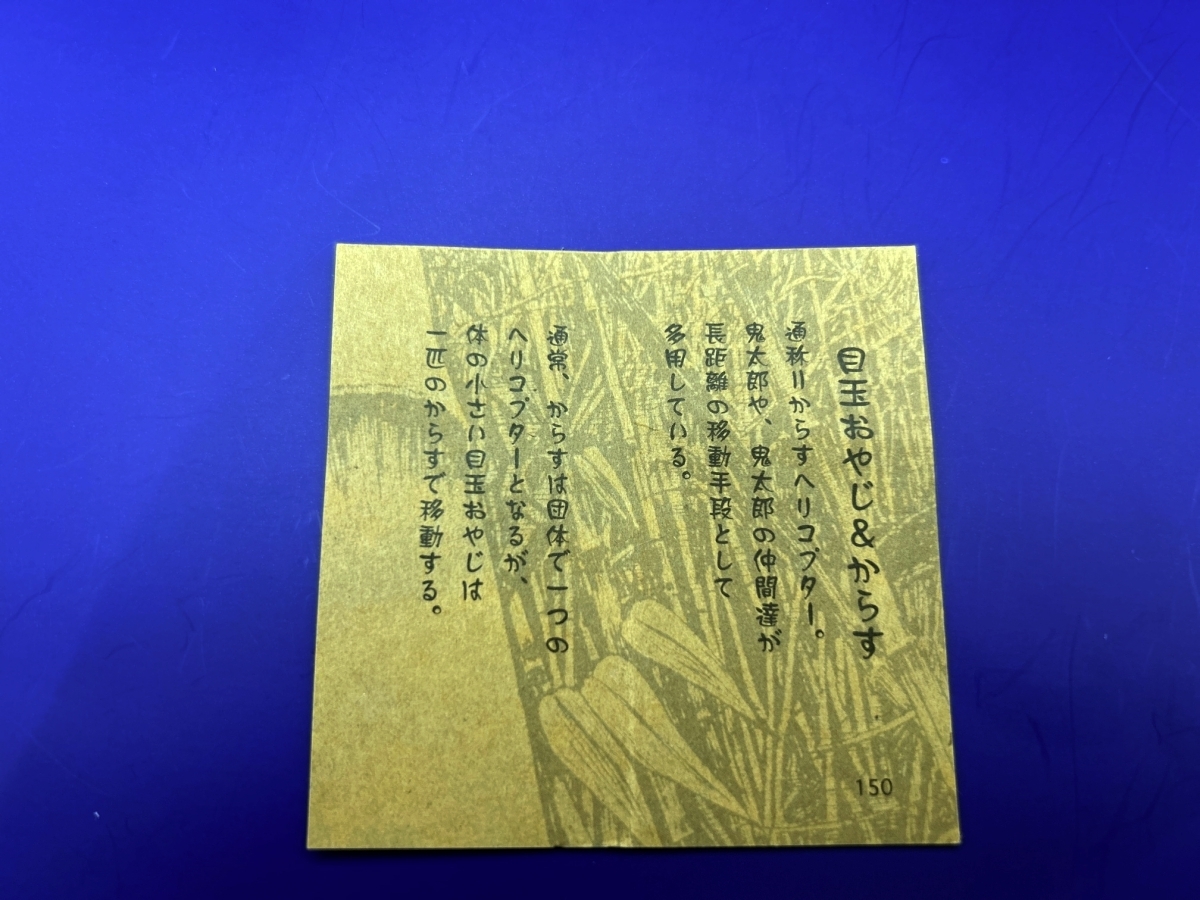 目玉おやじ&からす
通称=からすヘリコプター。
鬼太郎や、鬼太郎の仲間達が
長距離の移動手段として
多用している。
通常、からすは団体で一つの
ヘリコプターとなるが、
体の小さい目玉おやじは
一匹のからすで移動する。
150